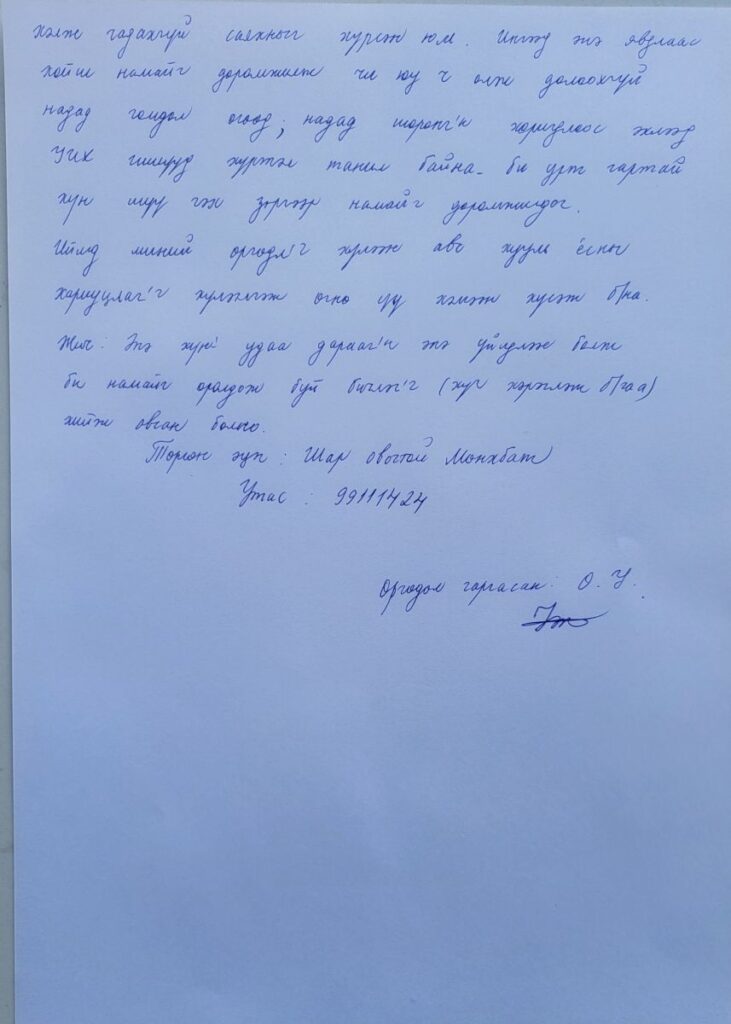 хэлж гадахгүй саяхныг хүргэж юм. Ингээд энэ явдлаас
хойш намайг доромжилж чи юу ч олж долоохгүй
надад гомдол өгөөд; надад шоронг'н хоригдлоос эхлээд
УИХ гишүүд хүртэл танил байна. би урт гартай
хүн шүү гэх зэргээр намайг доромжилдог.
Иймд миний өргөдл'г хүлээж авч хууль ёсны
хариуцлаг'г хүлээлгэж өгнө үү хэмээн хүсэж б/на.
Жич: Энэ хүн удаа дараагийн энэ үйлдэлж болж
би намайг оролдож буй бичлэг'г (хүч хэрэглэж б/гаа)
хийж авсан болно.
Төрсөн эцэг: Шар овогтой Мөнхбат
Утас: 99111424
Өргөдөл гаргасан: О. У.